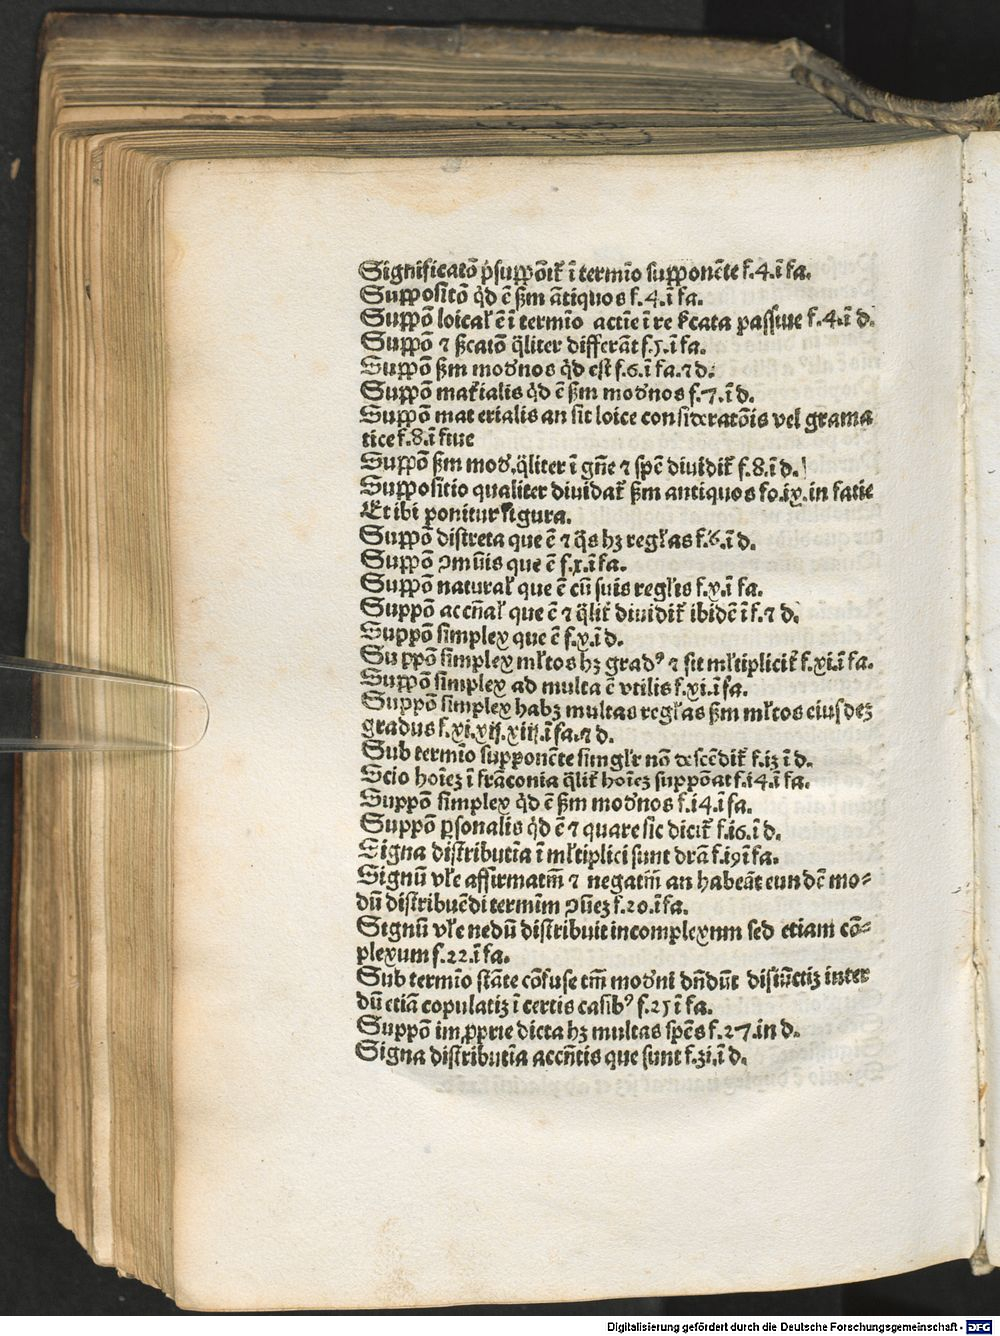 Significatō p̄suppōit᷑ ī termīo supponēte f.4.ī fa.
Suppositō q̇d ē ẜm ātiquos f.4.ī fa.
Suppō loical᷑ ē ī termīo actīe ī re ẜcata passiue f.4.ī d.
Suppō ⁊ ẜcatō q̄liter differāt f.5.ī fa.
Suppō ẜm modʾnos q̇d est f.6.ī fa.⁊ d.
Suppō mat᷑ialis q̇d ē ẜm modʾnos f.7.ī d.
Suppō mat erialis an sit loice consideratōis vel grama
tice f.8.ī fine
Suppō ẜm modʾ.q̄liter ī gn̄e ⁊ spē diuidit᷑ f.8.ī d.
Suppositio qualiter diuidat᷑ ẜm antiquos fo.ix.in facie
Et ibi ponitur figura.
Suppō discreta que ē ⁊ q̄s hꝫ regl᷑as f.6.ī d.
Suppō ꝯmūis que ē f.x.ī fa.
Suppō natural᷑ que ē cū suis regl᷑is f.x.ī fa.
Suppō accn̄al᷑ que ē ⁊ q̄lit᷑ diuidit᷑ ibidē ī f.⁊ d.
Suppō simplex que ē f.x.ī d.
Su ppō simplex ml᷑tos hꝫ gradꝰ ⁊ sit ml᷑tiplicit᷑ f.xi.ī fa.
Suppō simplex ad multa ē vtilis f.xi.ī fa.
Suppō simplex habꝫ multas regl᷑as ẜm ml᷑tos eiusdeꝫ
gradus f.xi.xij.xiij.ī fa.⁊ d.
Sub termīo supponēte singl᷑r nō descēdit᷑ f.13 ī d.
Scio hoīeꝫ ī frāconia q̄lit᷑ hoīeꝫ suppōat f.14.ī fa.
Suppō simplex q̇d ē ẜm modʾnos f.14.ī fa.
Suppō ꝑsonalis q̇d ē ⁊ quare sic dicit᷑ f.16.ī d.
Signa distributīa ī ml᷑tiplici sunt dr̄a f.19 ī fa.
Signū vl᷑e affirmatm̄ ⁊ negatm̄ an habeāt eundē mo⸗
dū distribuēdi termīm ꝯn̄eꝫ f.20.ī fa.
Signū vl᷑e nedū distribuit incomplexum sed etiam cō⸗
plexum f.22.ī fa.
Sub termīo stāte cōfuse tm̄ modʾni dn̄dūt disiūctiꝫ inter
dū etiā copulatiꝫ ī certis casibꝰ f.25 ī fa.
Suppō im ꝓprie dicta hꝫ multas spēs f.27.in d.
Signa distributīa accn̄tis que sunt f.31.ī d.
Digitalisierung gefördert durch die Deutsche Forschungsgemeinschaft - DFG